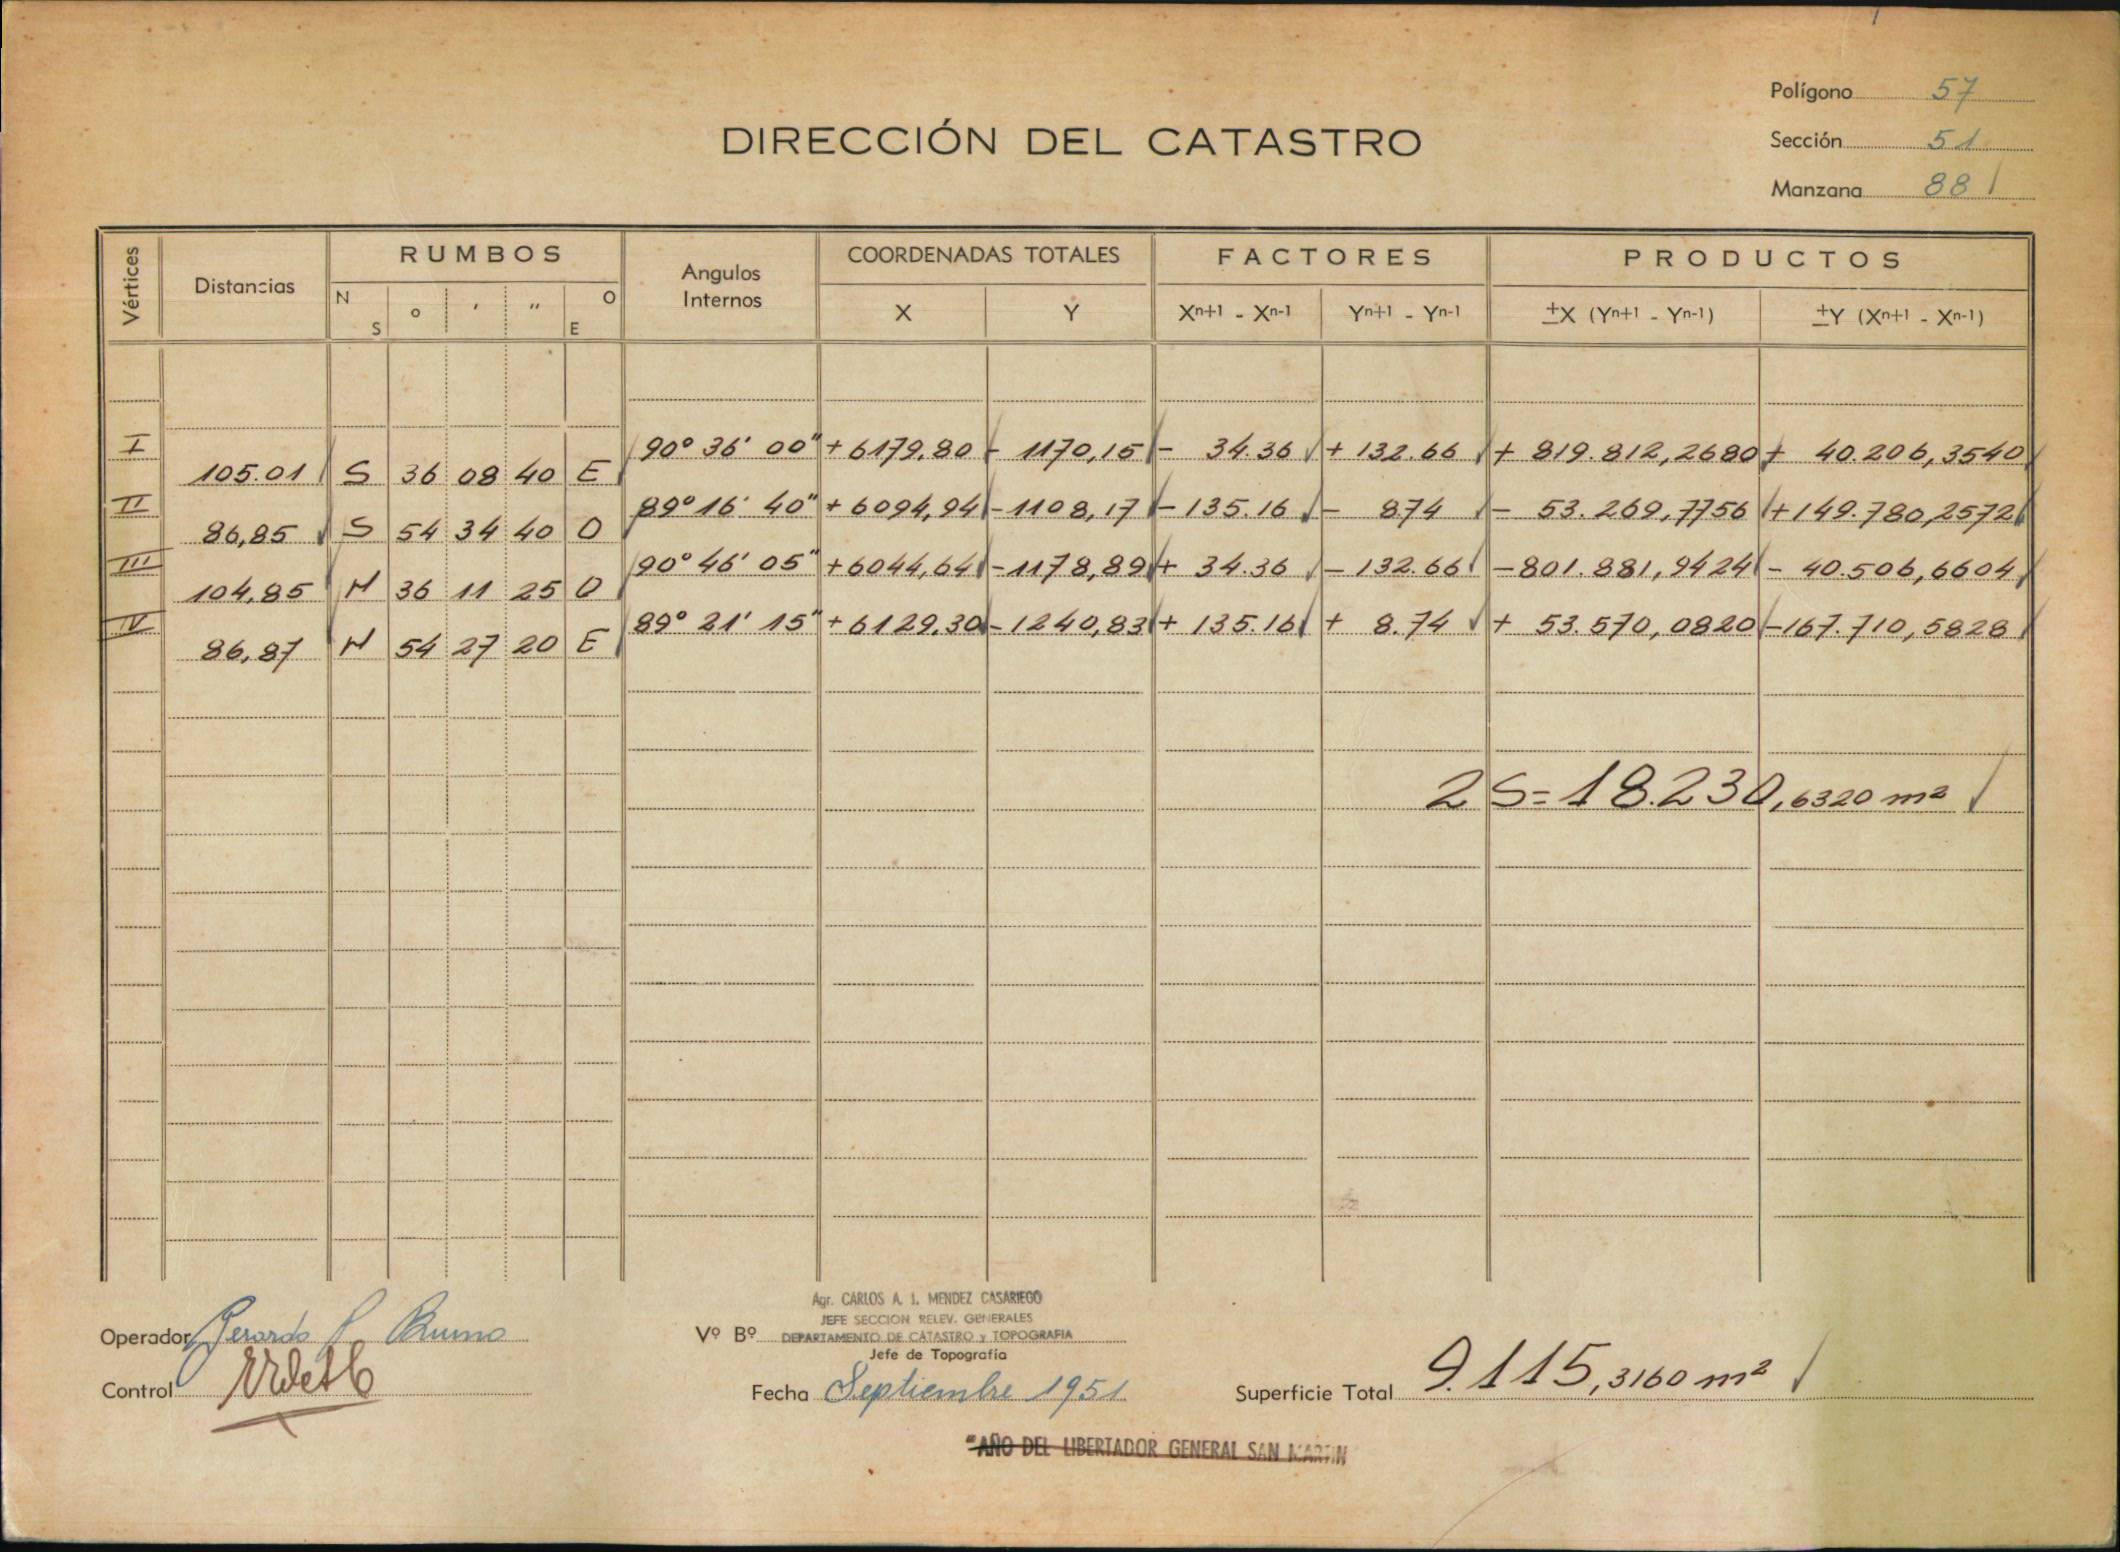 Polígono 57
DIRECCIÓN DEL CATASTRO
Sección 51
Manzana 88
Vértices Distancias RUMBOS Angulos Internos COORDENADAS TOTALES FACTORES PRODUCTOS
N S ° ' " O E X Y Xn+1 - Xn-1 Yn+1 - Yn-1 ±X (Yn+1 - Yn-1) ±Y (Xn+1 - Xn-1)
I 90° 36' 00" + 6179,80 - 1170,15 - 34.36 + 132.66 + 819.812,2680 + 40.206,3540
105.01 S 36 08 40 E
II 89° 16' 40" + 6094,94 - 1108,17 - 135.16 - 874 - 53.269,7756 + 149.780,2572
86,85 S 54 34 40 O
III 90° 46' 05" + 6044,64 - 1178,89 + 34.36 - 132.66 - 801.881,9424 - 40.506,6604
104,85 N 36 11 25 O
IV 89° 21' 15" + 6129,30 - 1240,83 + 135.16 + 8.74 + 53.570,0820 - 167.710,5828
86,87 N 54 27 20 E
2S = 18.230,6320 m²
Agr. CARLOS A. J. MENDEZ CASARIEGO
JEFE SECCION RELEV. GENERALES
Operador Gerardo Vº Bº DEPARTAMENTO DE CATASTRO y TOPOGRAFIA
Jefe de Topografía
Control Fecha Septiembre 1951 Superficie Total 9.115,3160 m²
"AÑO DEL LIBERTADOR GENERAL SAN MARTIN